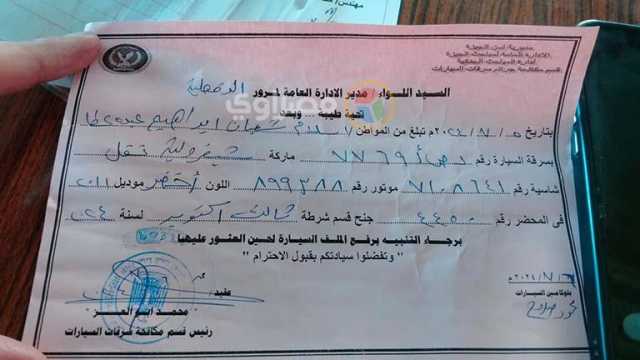 مهندس
مديرية أمن الجيزة
الإدارة العامة لمباحث الجيزة
إدارة المباحث الجنائية
قسم مكافحة جرائم سرقات السيارات
السيد اللواء / مدير الادارة العامة لمرور الدقهلية
تحية طيبة ... وبعد
بتاريخ ٢٠٢٤/٧/٥م تبلغ من المواطن / اسلام شعبان ابراهيم
بسرقة السيارة رقم ٧٧٦٩ ماركة شيفروليه نقل
شاسية رقم ٧١٠٨٦٤١ موتور رقم ٨٩٩٣٨٨ اللون أخضر موديل ٢٠١١
فى المحضر رقم ٤٤٥٠ جنح قسم شرطة ثالث اكتوبر لسنة ٢٠٢٤
برجاء التنبيه برفع الملف السيارة لحين العثور عليها
" وتفضلوا سيادتكم بقبول الاحترام "
عقيد /
محمد أبو العز
رئيس قسم مكافحة سرقات السيارات
بلوكامين السيارات
مصراوي